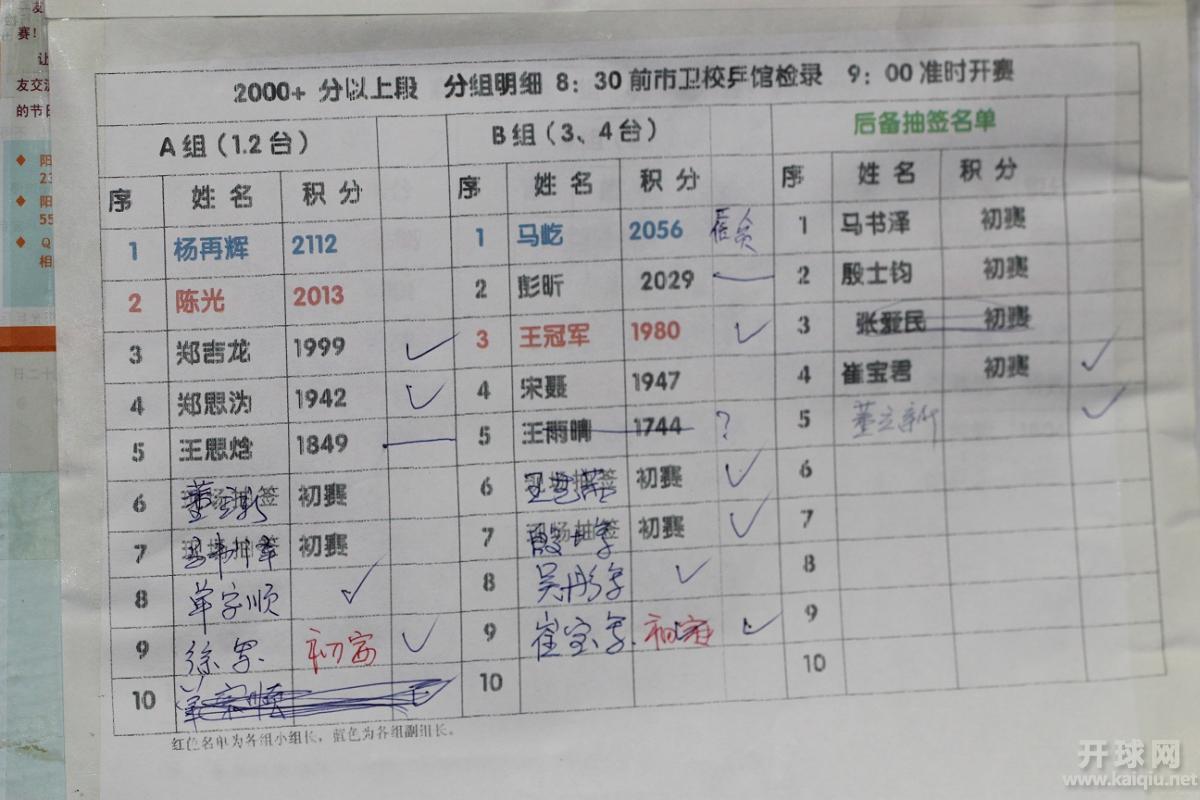 友
赛！
让
友交流
的节日
阳
23
阳
55
Q
相
2000+ 分以上段 分组明细 8：30 前市卫校乒馆检录 9：00 准时开赛
A 组（1.2 台） B 组（3、4 台） 后备抽签名单
序 姓 名 积 分 序 姓 名 积 分 序 姓 名 积 分
1 杨再辉 2112 1 马屹 2056 1 马书泽 初赛
2 陈光 2013 2 彭昕 2029 2 殷士钧 初赛
3 郑吉龙 1999 ✓ 3 王冠军 1980 ✓ 3 张爱民 初赛
4 郑思沩 1942 ✓ 4 宋聂 1947 4 崔宝君 初赛 ✓
5 王思焓 1849 5 王雨晴 1744 ? 5 董立新 ✓
6 现场抽签 初赛 6 现场抽签 初赛 ✓ 6
7 现场抽签 初赛 7 现场抽签 初赛 ✓ 7
8 单字顺 ✓ 8 吴彤 ✓ 8
9 徐军 初赛 ✓ 9 崔宝军 初赛 ✓ 9
10 10 10
红色名单为各组小组长，蓝色为各组副组长。
开球网
www.kaiqiu.net